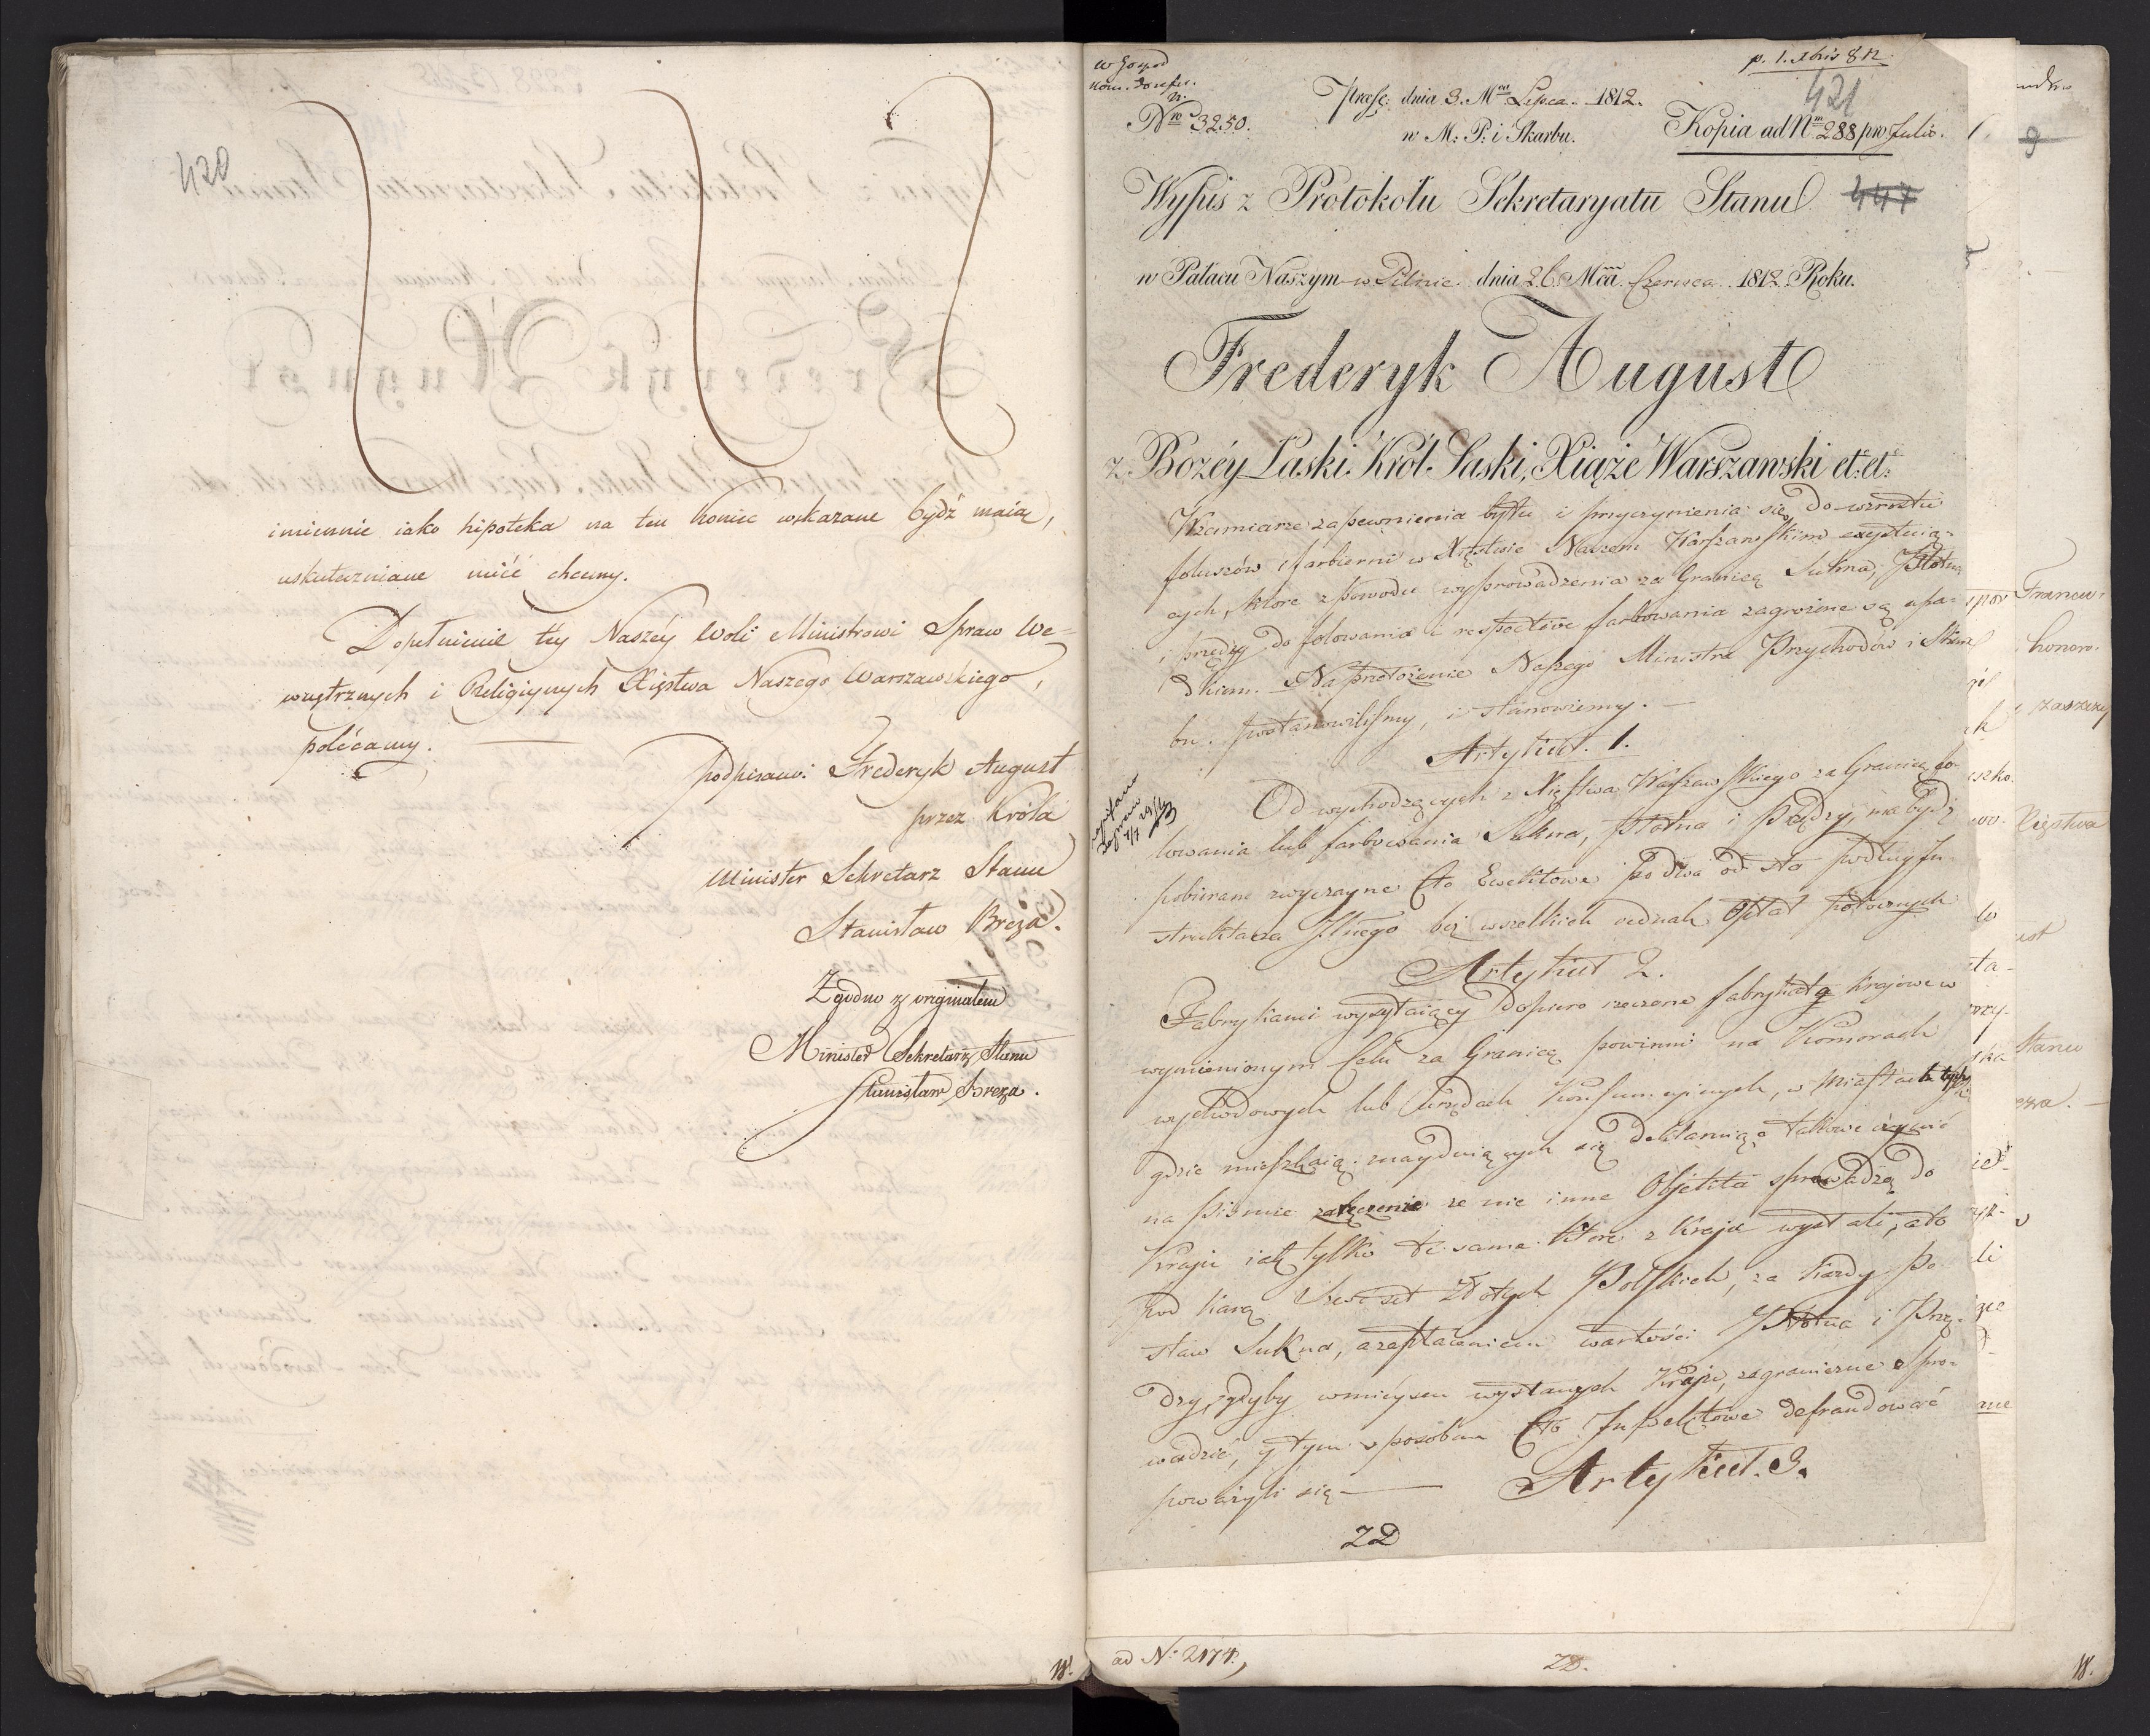 420
imiennie iako hipoteka na ten koniec wskazane bydź maią,
uskutecznione mieć chcemy.
Dopełnienie téy Naszéy Woli Ministrowi Spraw We=
wnętrznych i Religiynych Xięstwa Naszego Warszawskiego,
polécamy.
podpisano: Frederyk August
przez Króla
Minister Sekretarz Stanu
Stanisław Breza.
Zgodno z originałem
Minister Sekretarz Stanu
Stanisław Breza.
W.
p. 1. xbris 812
Nro 3250.
Præs: dnia 3. Mca Lipca. 1812.
w M: P: i Skarbu.
421
Kopia ad Nm 288 pro Julio.
Wypis z Protokołu Sekretaryatu Stanu
447
w Pałacu Naszym w Pilnic. dnia 26 Mca Czerwca. 1812 Roku.
Frederyk August
z Bożéy Łaski Król Saski, Xiąże Warszawski etc: etc:
W zamiarze zapewnienia bytu i przyczynienia się do wzrostu
foluszów i farbierni w Xięstwie Naszem Warszawskim exystuią=
cych, które z powodu wyprowadzenia za Granicę Sukna, Płótna
i przędzy do folowania i respective farbowania zagrożone są upa=
dkiem. Na przełożenie Naszego Ministra Przychodów i Skar=
bu. postanowiliśmy, i stanowiemy. —
Artykuł. 1.
Od wychodzących z Xięstwa Warszawskiego za Granicę do fo=
lowania lub farbowania Sukna, Płótna i Przędzy, ma bydź
pobierane zwyczayne Cło Ewektowe po dwa od sta podług In=
struktarza Ilnego bez wszelkich jednak Opłat pobocznych
Artykuł 2.
Fabrykanci wysyłaiący dopiero rzeczone fabrykata Krajowe w
wymienionym Celu za Granicę powinni na Komorach
wychodowych lub Urzędach Konsumcyinych, w Miastach tych,
gdzie mieszkaią znayduiących się deklaruiąc takowe czynić
na piśmie zaręczenie że nie inne Objekta sprowadzą do
Kraju iak tylko te same które z Kraju wysłali, a to
pod karą Sześćset Złotych Polskich, za każdy Po
staw Sukna, a zapłaceniem wartości Płótna i Przę=
dzy, gdyby w mieysce wysłanych Kraju, zagraniczne spro=
wadzić, y tym sposobem Cło Inwektowe defraudować
poważyli się —
Artykuł. 3.
ZD
ad No: 2174.,
ZD.
W.